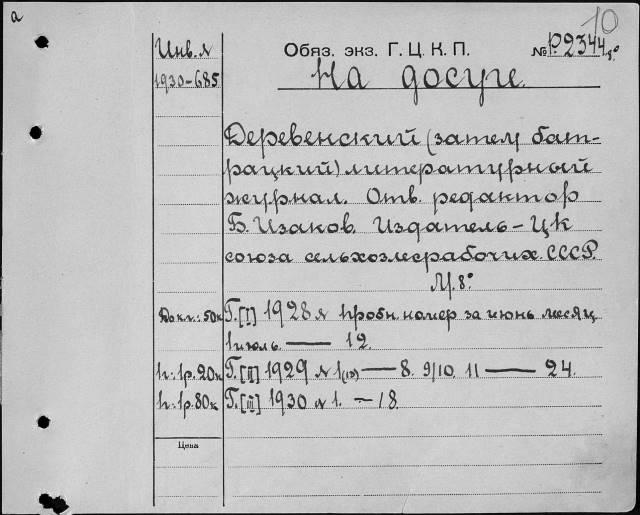 а
10
Инв. №
1930-685
Обяз. экз. Г. Ц. К. П. № Р.2344 8°
На досуге.
Деревенский (затем бат-
рацкий) литературный
журнал. Отв. редактор
Б. Изаков. Издатель – ЦК
союза сельхозлесрабочих СССР.
М. 8°
Г. [I] 1928 № пробн. номер за июнь месяц
1 июль — 12.
п. 1р. 20к Г. [II] 1929 № 1(13) — 8. 9/10. 11 — 24.
п. 1р. 80к Г. [III] 1930 № 1. — 18.
Цена